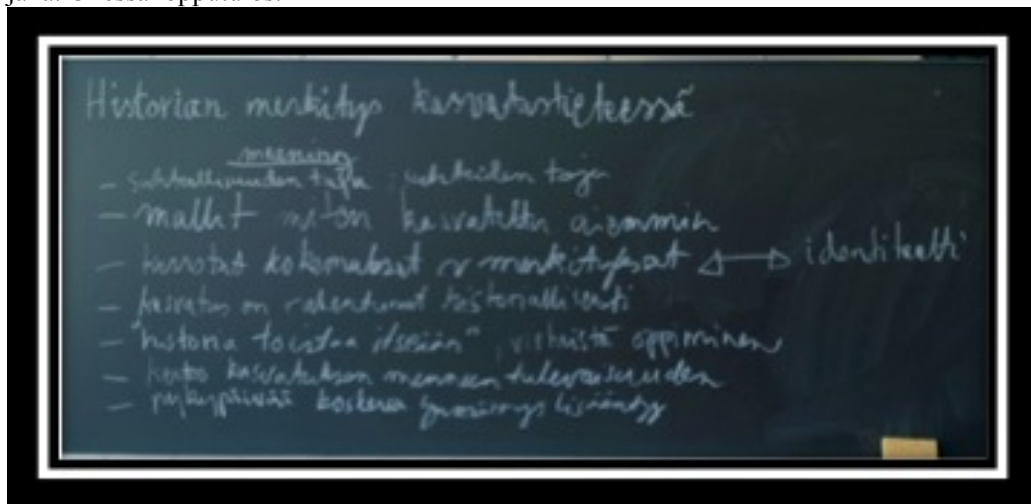 Historian merkitys kasvatustieteessä
meaning
- suhteellisuuden taju
- mallit miten kasvatettu aiemmin
- kokemukset merkitykset identiteetti
- kasvatus on rakentunut historiallisesti
- "historia toistaa itseään", virheistä oppiminen
- kertoo kasvatuksen menneen tulevaisuuden
- nykypäivää koskeva ymmärrys lisääntyy